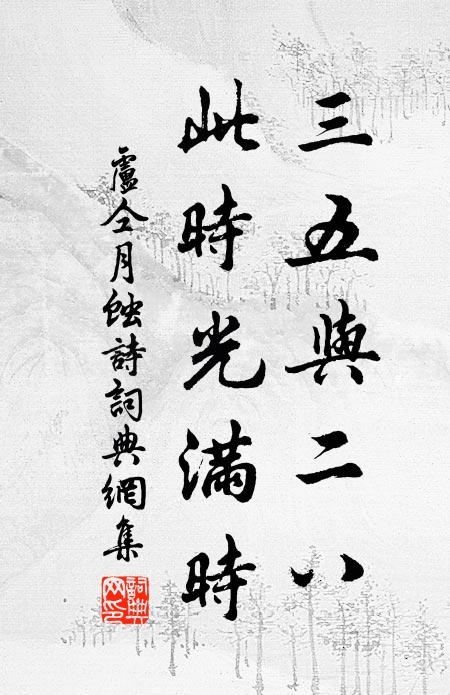 三五與二八
此時光滿時
盧仝月蝕詩詞典網集
詞典
网